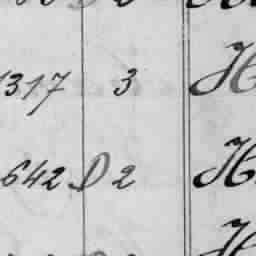 1317 3 H
642 D 2 H